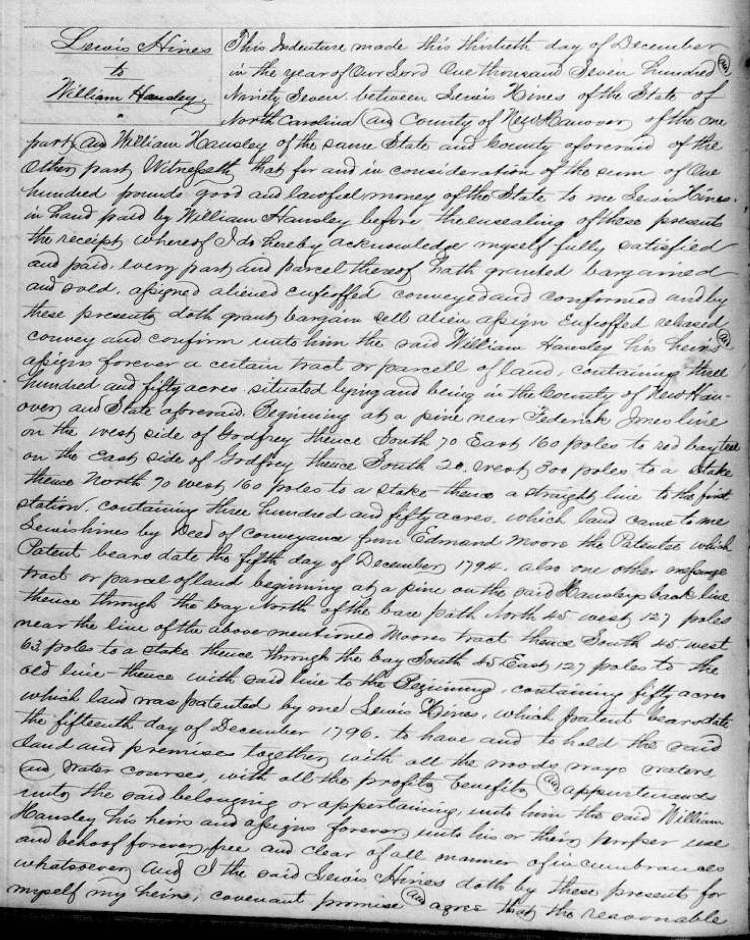 Lewis Hines
to
William Hansley.
This Indenture made this thirtieth day of December
in the year of Our Lord One thousand Seven hundred and
Ninety Seven. between Lewis Hines of the State of
North Carolina and County of New Hanover, of the one
part, and William Hansley of the same State and County aforesaid of the
Other part, Witnesseth that for and in consideration of the sum of One
hundred pounds good and lawful money of the State to me Lewis Hines.
in hand paid by William Hansley before the ensealing of these presents
the receipt whereof I do hereby acknowledge myself fully satisfied
and paid. every part and parcel thereof hath granted bargained
and sold. assigned aliened enfeoffed conveyed and confirmed and by
these presents doth grant bargain sell alien assign Enfeoffed released
convey and confirm unto him the said William Hansley his heirs and
assigns forever a certain tract or parcell of land, containing three
hundred and fifty acres situated lying and being in the County of New Han-
over, and State aforesaid. Beginning at a pine near Federick Jones line
on the west side of Godfrey thence South 70 East 160 poles to red bay tree
on the East side of Godfrey thence South 20. west 300 poles to a Stake
thence North 70 west 160 poles to a stake thence a straight line to the first
station. containing three hundred and fifty acres. which land came to me
Lewis hines by Deed of Conveyance from Edmand Moore the Patentee which
Patent bears date the fifth day of December 1794. also one other
tract or parcel of land beginning at a pine on the said Hansleys back line
thence through the bay North of the bare path North 45 west 127 poles
near the line of the above mentioned Moores tract thence South 45. west
63. poles to a stake thence through the bay South 45 East, 127 poles to the
old line - thence with said line to the Beginning, containing fifty acres
which land was patented by me Lewis Hines, which patent bears date
the fifteenth day of December 1796. to have and to hold the said
land and premises together, with all the woods ways waters
and water courses, with all the profits benefits and appurtenances
unto the said belonging or appertaining, unto him the said William
Hansley his heirs and assigns forever unto his or their proper use
and behoof forever, free and clear of all manner of incumbrances
whatsoever, And I the said Lewis Hines doth by these presents for
myself my heirs, covenant promise and agree that the reasonable